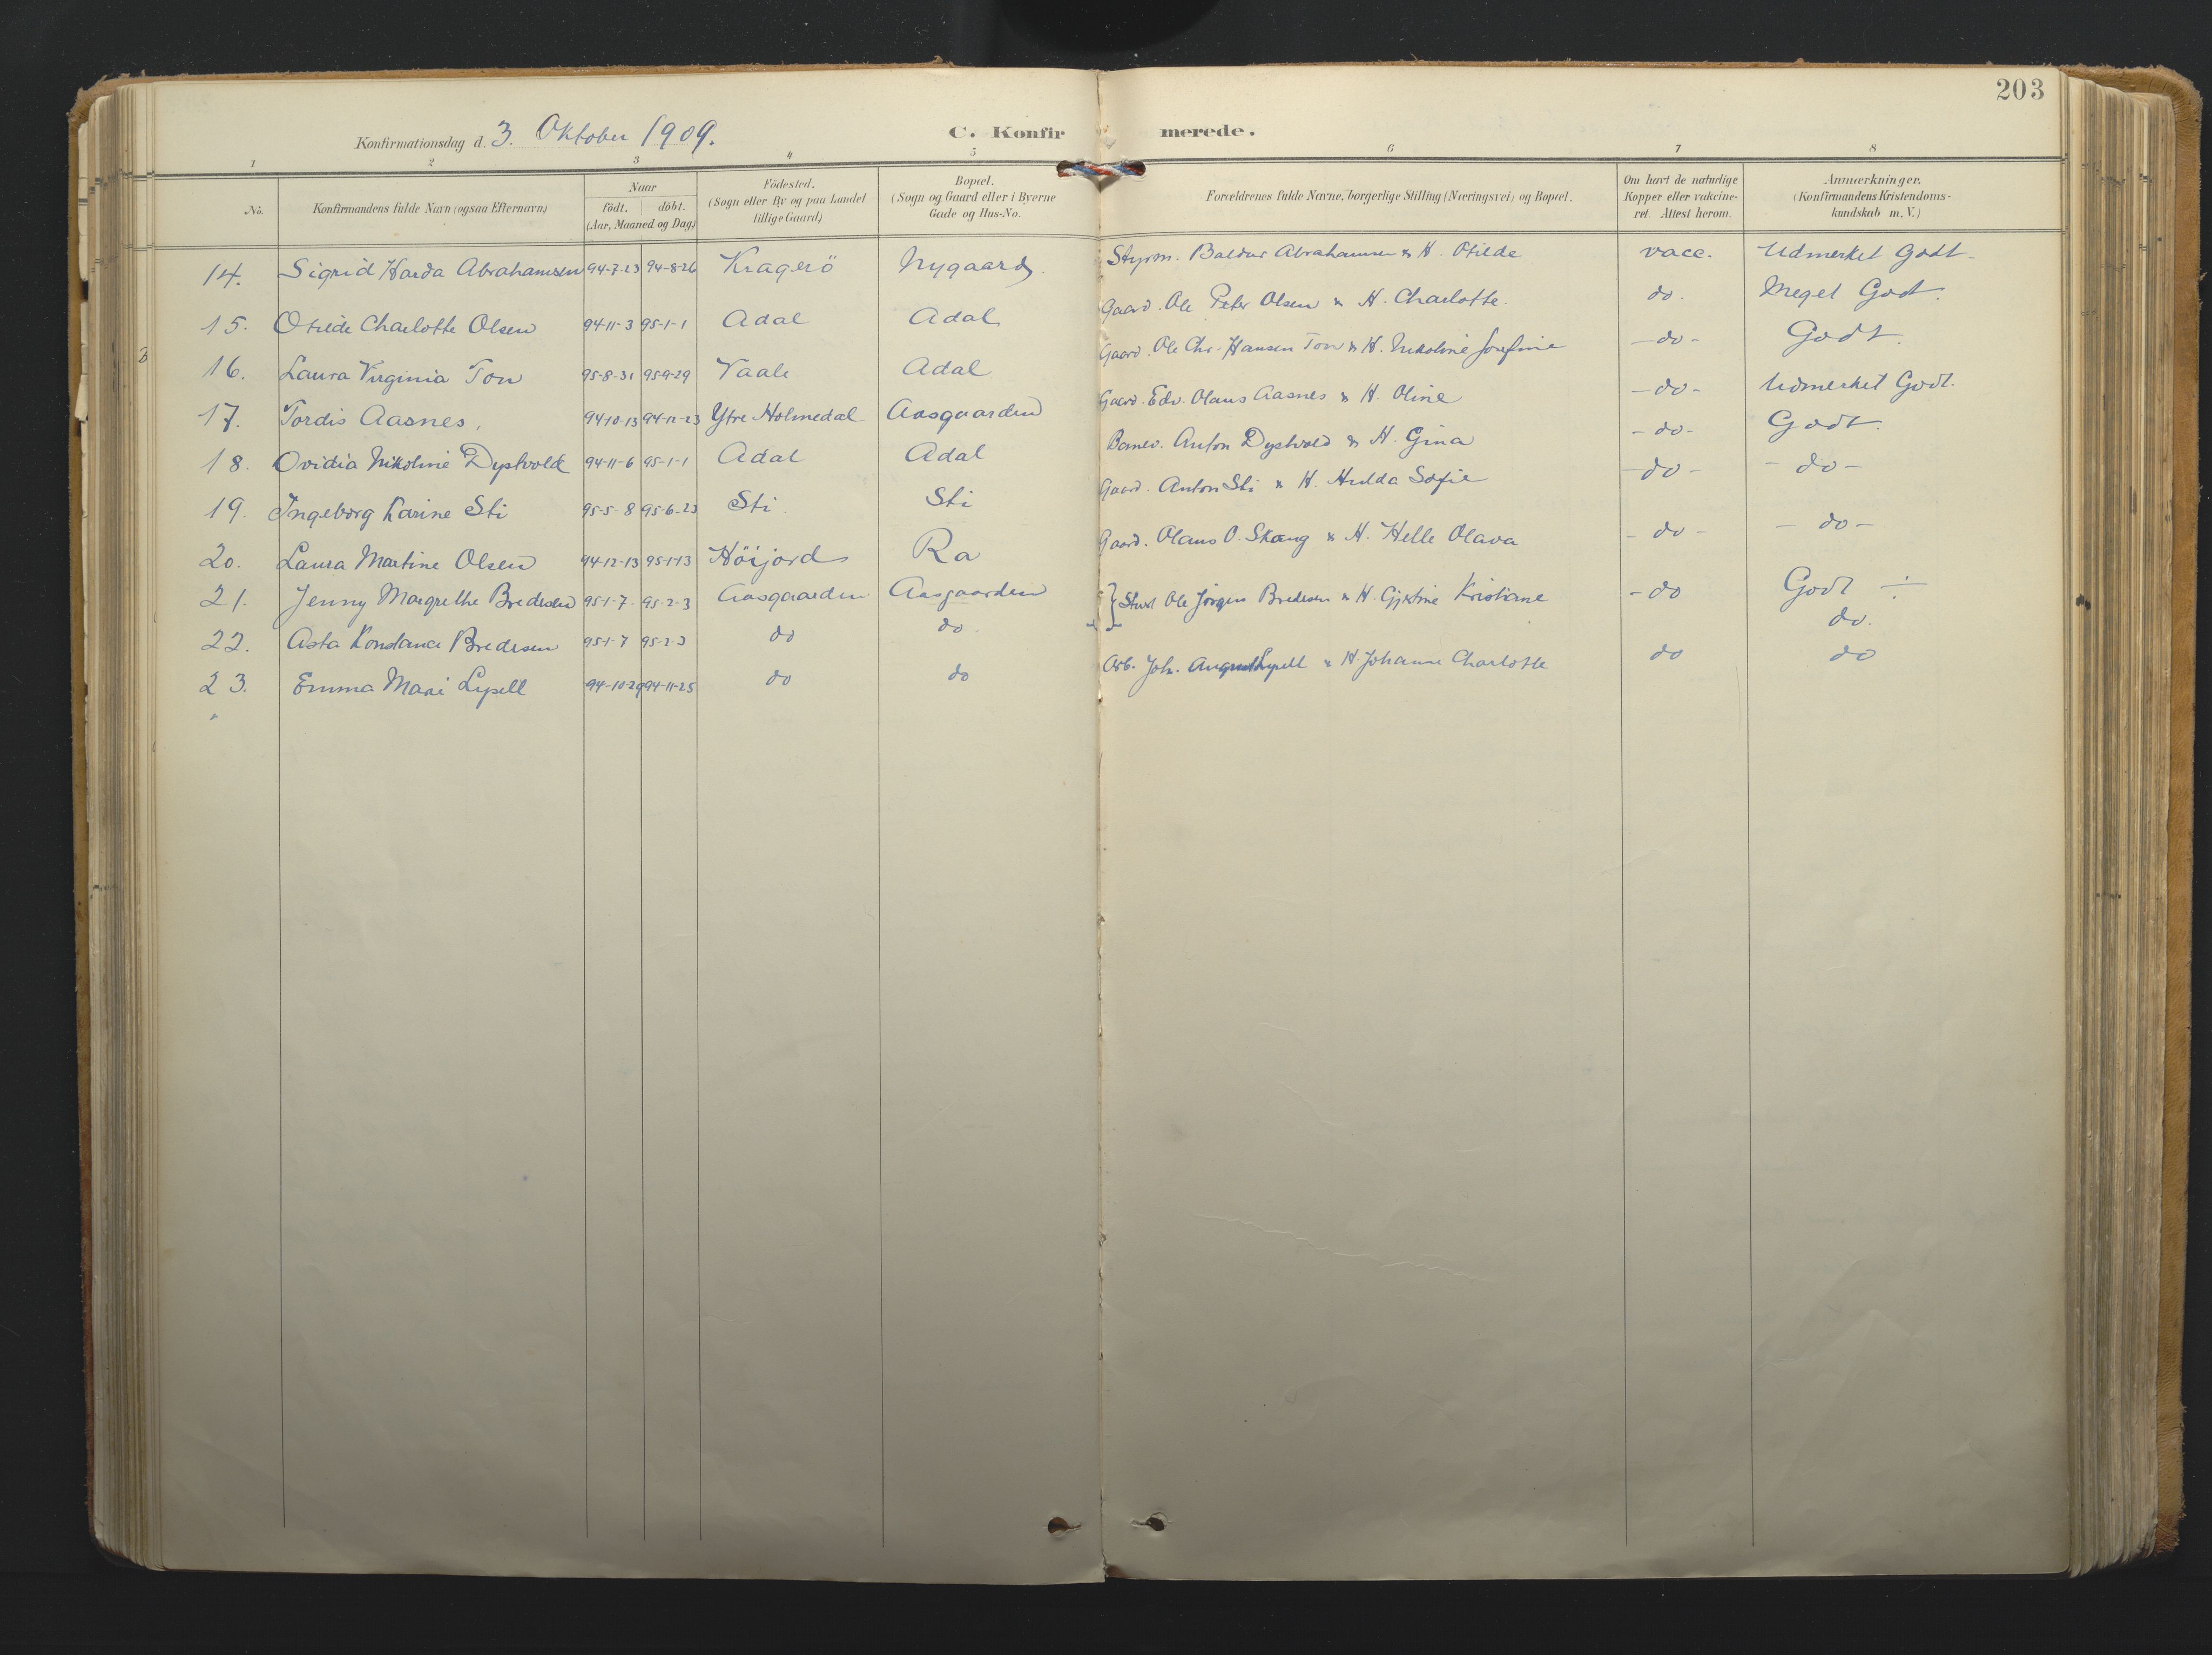 203
Konfirmationsdag d. 3. Oktober 1909.
C. Konfirmerede.
1 2 3 4 5 6 7 8
No. Konfirmandens fulde Navn (ogsaa Efternavn) Naar født. døbt. (Aar, Maaned og Dag) Födested. (Sogn eller By og paa Landet tillige Gaard) Bopæl. (Sogn og Gaard eller i Byerne Gade og Hus-No. Forældrenes fulde Navne, borgerlige Stilling (Næringsvei) og Bopæl. Om havt de naturlige Kopper eller vakcineret. Attest herom. Anmærkninger. (Konfirmandens Kristendomskundskab m. V.)
14. Sigrid Harda Abrahamsen 94-7-23 94-8-26 Kragerö Nygaard. Styrm. Baldur Abrahamsen & H. Otilde vacc. Udmerket Godt-
15. Otilde Charlotte Olsen 94-11-3 95-1-1 Adal Adal Gaard. Ole Peter Olsen & H. Charlotte. do. Meget Godt.
16. Laura Virginia Ton 95-8-31 95-9-29 Vaale Adal Gaard. Ole Chr. Hansen Ton & H. Nikoline Josefine -do- Godt.
17. Tordis Aasnes. 94-10-13 94-12-23 Ytre Holmedal Aasgaarden Gaard. Edv. Olaus Aasnes & H. Oline -do- Udmerket Godt.
18. Ovidia Nikoline Dystvold 94-11-6 95-1-1 Adal Adal Banev. Anton Dystvold & H. Gina -do- Godt.
19. Ingeborg Karine Sti 95-5-8 95-6-23 Sti. Sti Gaard. Anton Sti & H. Hulda Sofie -do- -do-
20. Laura Martine Olsen 94-12-13 95-1-13 Höijord Ra Gaard. Olaus O. Skaug & H. Helle Olava -do- -do-
21. Jenny Margrethe Bredesen 95-1-7. 95-2-3 Aasgaarden Aasgaarden Ole Jörgen Bredesen & H. Kristiane -do Godt ÷
22. Asta Konstance Bredesen 95-1-7 95-2-3 do do. do.
23. Emma Mari Lysell 94-10-29 94-11-25 do do Arb. Joh. August Lysell & H. Johanne Charlotte do do